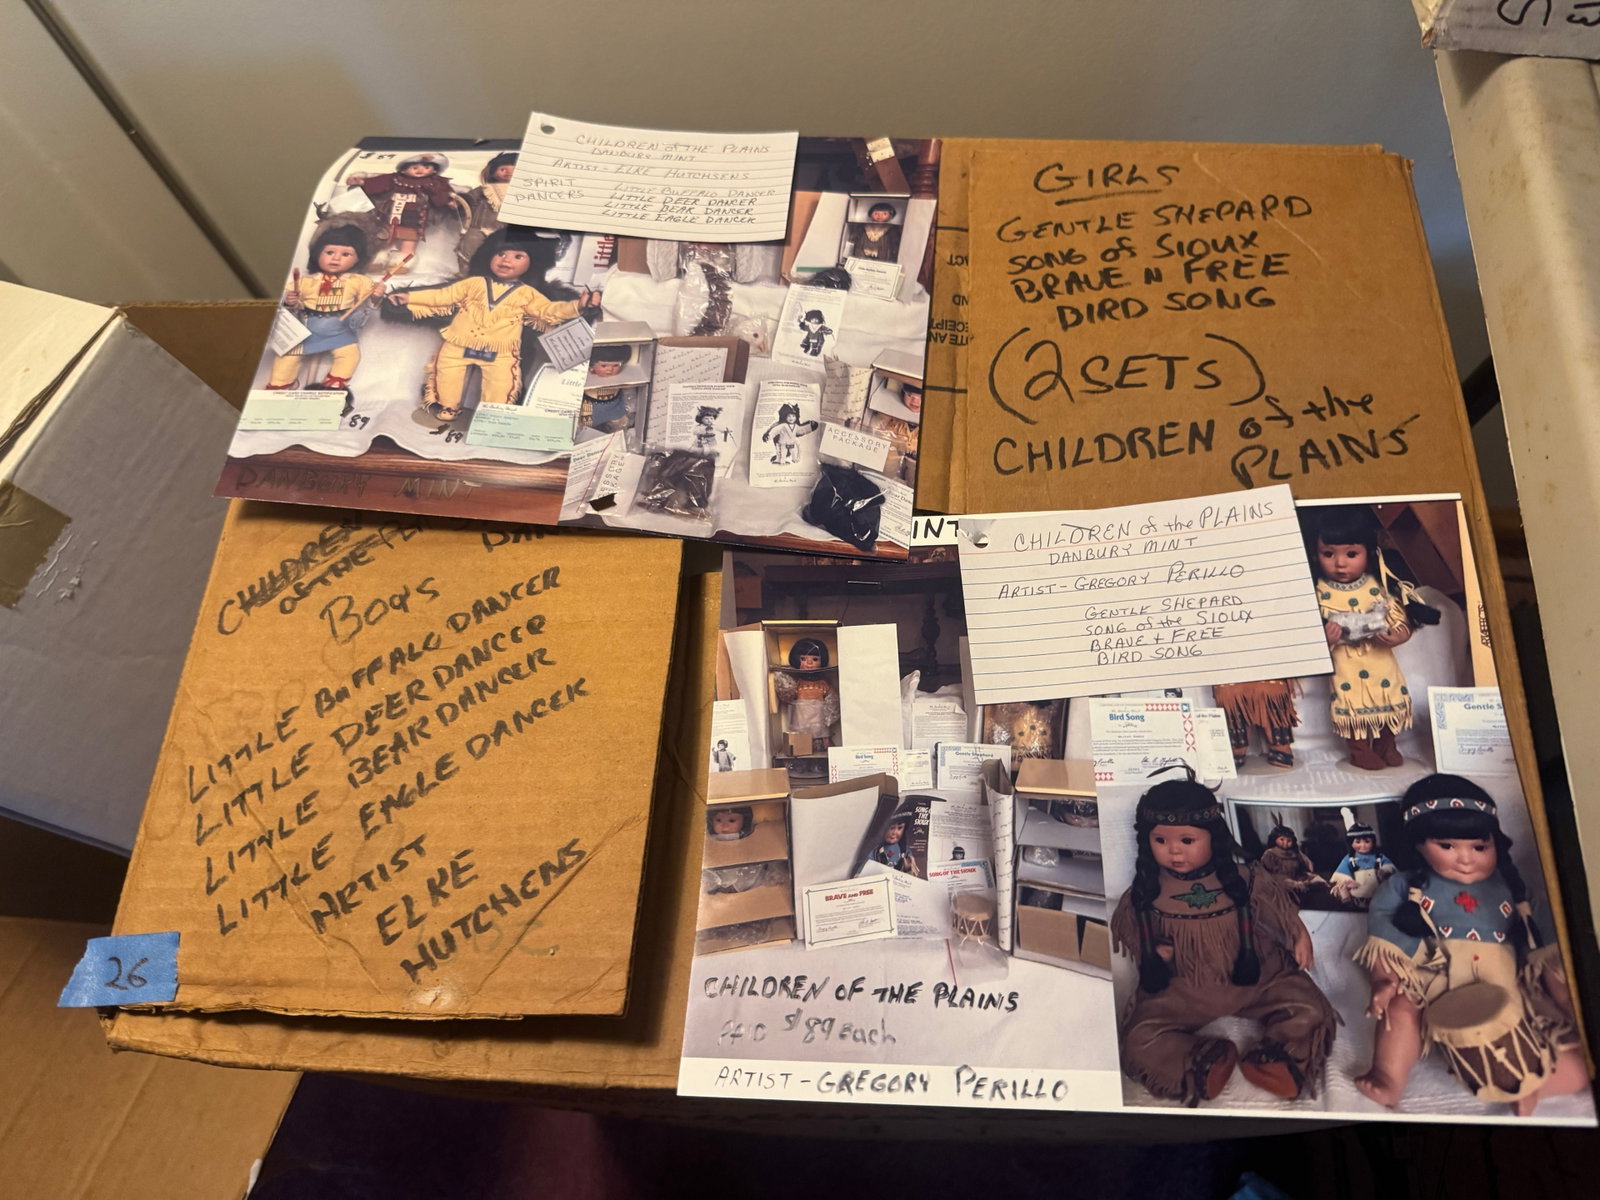 CHILDREN of the PLAINS
DANBURY MINT
ARTIST - ELKE HUTCHSENS
SPIRIT
DANCERS
LITTLE BUFFALO DANCER
LITTLE DEER DANCER
LITTLE BEAR DANCER
LITTLE EAGLE DANCER
$89
$89
DANBURY MINT
ACCESSORY
PACKAGE
GIRLS
GENTLE SHEPARD
SONG of SIOUX
BRAVE N FREE
DIRD SONG
(2 SETS)
CHILDREN of the
PLAINS
CHILDREN
OF THE
BOYS
LITTLE BUFFALO DANCER
LITTLE DEER DANCER
LITTLE BEAR DANCER
LITTLE EAGLE DANCER
ARTIST
ELKE
HUTCHENS
26
INT
CHILDREN of the PLAINS
DANBURY MINT
ARTIST - GREGORY PERILLO
GENTLE SHEPARD
SONG of the SIOUX
BRAVE + FREE
BIRD SONG
Bird Song
Gentle S
Bird Song
Gentle Shepherd
SONG OF
THE
SIOUX
SONG OF THE SIOUX
BRAVE AND FREE
CHILDREN OF THE PLAINS
PAID $89 each
ARTIST - GREGORY PERILLO